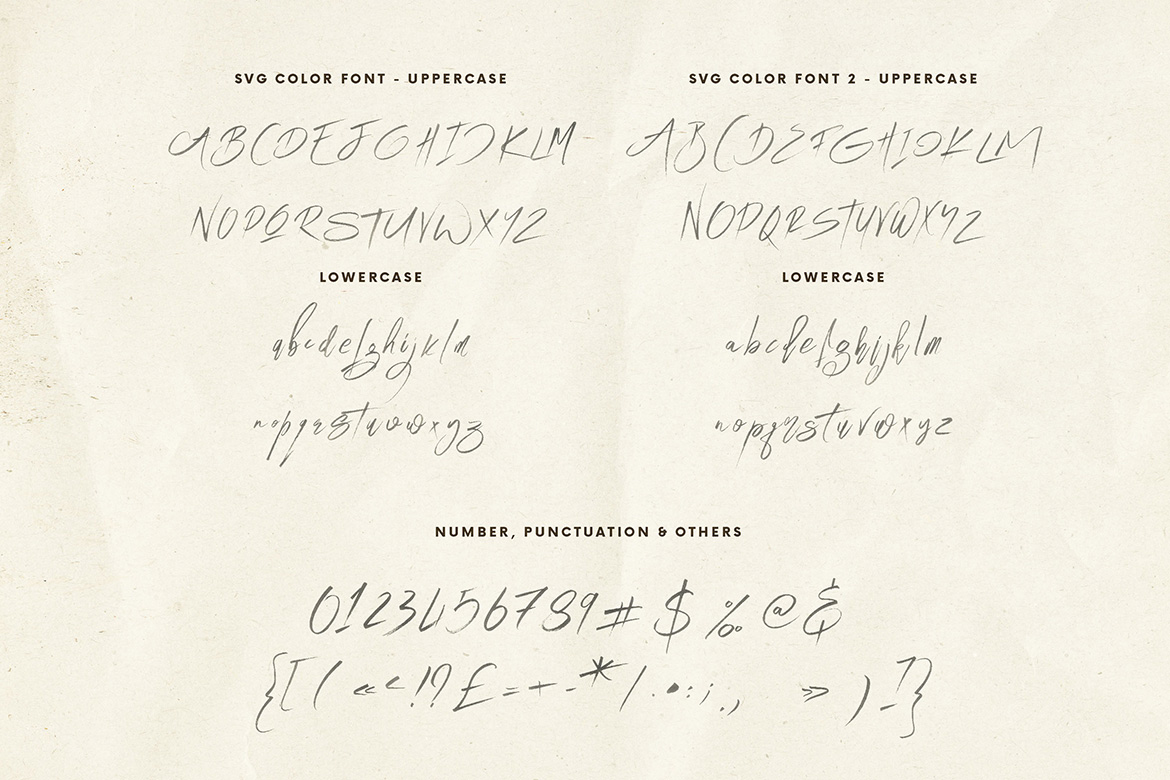 SVG COLOR FONT - UPPERCASE
ABCDEFGHIJKLM
NOPQRSTUVWXYZ
LOWERCASE
abcdefghijklm
nopqrstuvwxyz
SVG COLOR FONT 2 - UPPERCASE
ABCDEFGHIJKLM
NOPQRSTUVWXYZ
LOWERCASE
abcdefghijklm
nopqrstuvwxyz
NUMBER, PUNCTUATION & OTHERS
0123456789#$‰@&
{[( «‹!?£=+-*/.•:;., » )]}